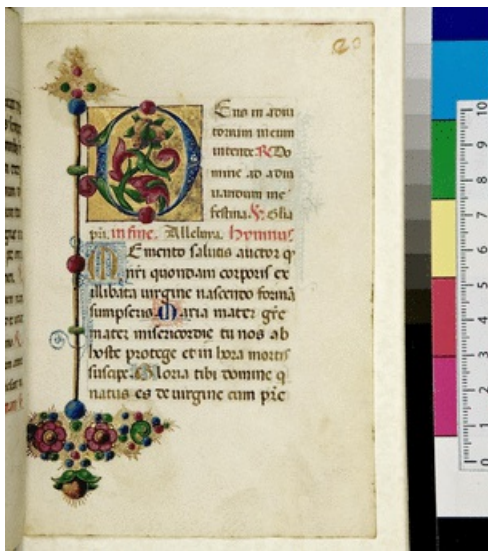 DEus in adiu
torium meum
intende. R Do
mine ad adiu
uandum me
festina. V. Glia
pri. in fine. Alleluya. hymnus
MEmento salutis auctor q
nri quondam corporis ex
illibata uirgine nascendo formã
sumpseris Maria mater gre
mater misericordie tu nos ab
hoste protege et in hora mortis
suscipe. Gloria tibi domine q
natus es de uirgine cum pre
10
9
8
7
6
5
4
3
2
1
0